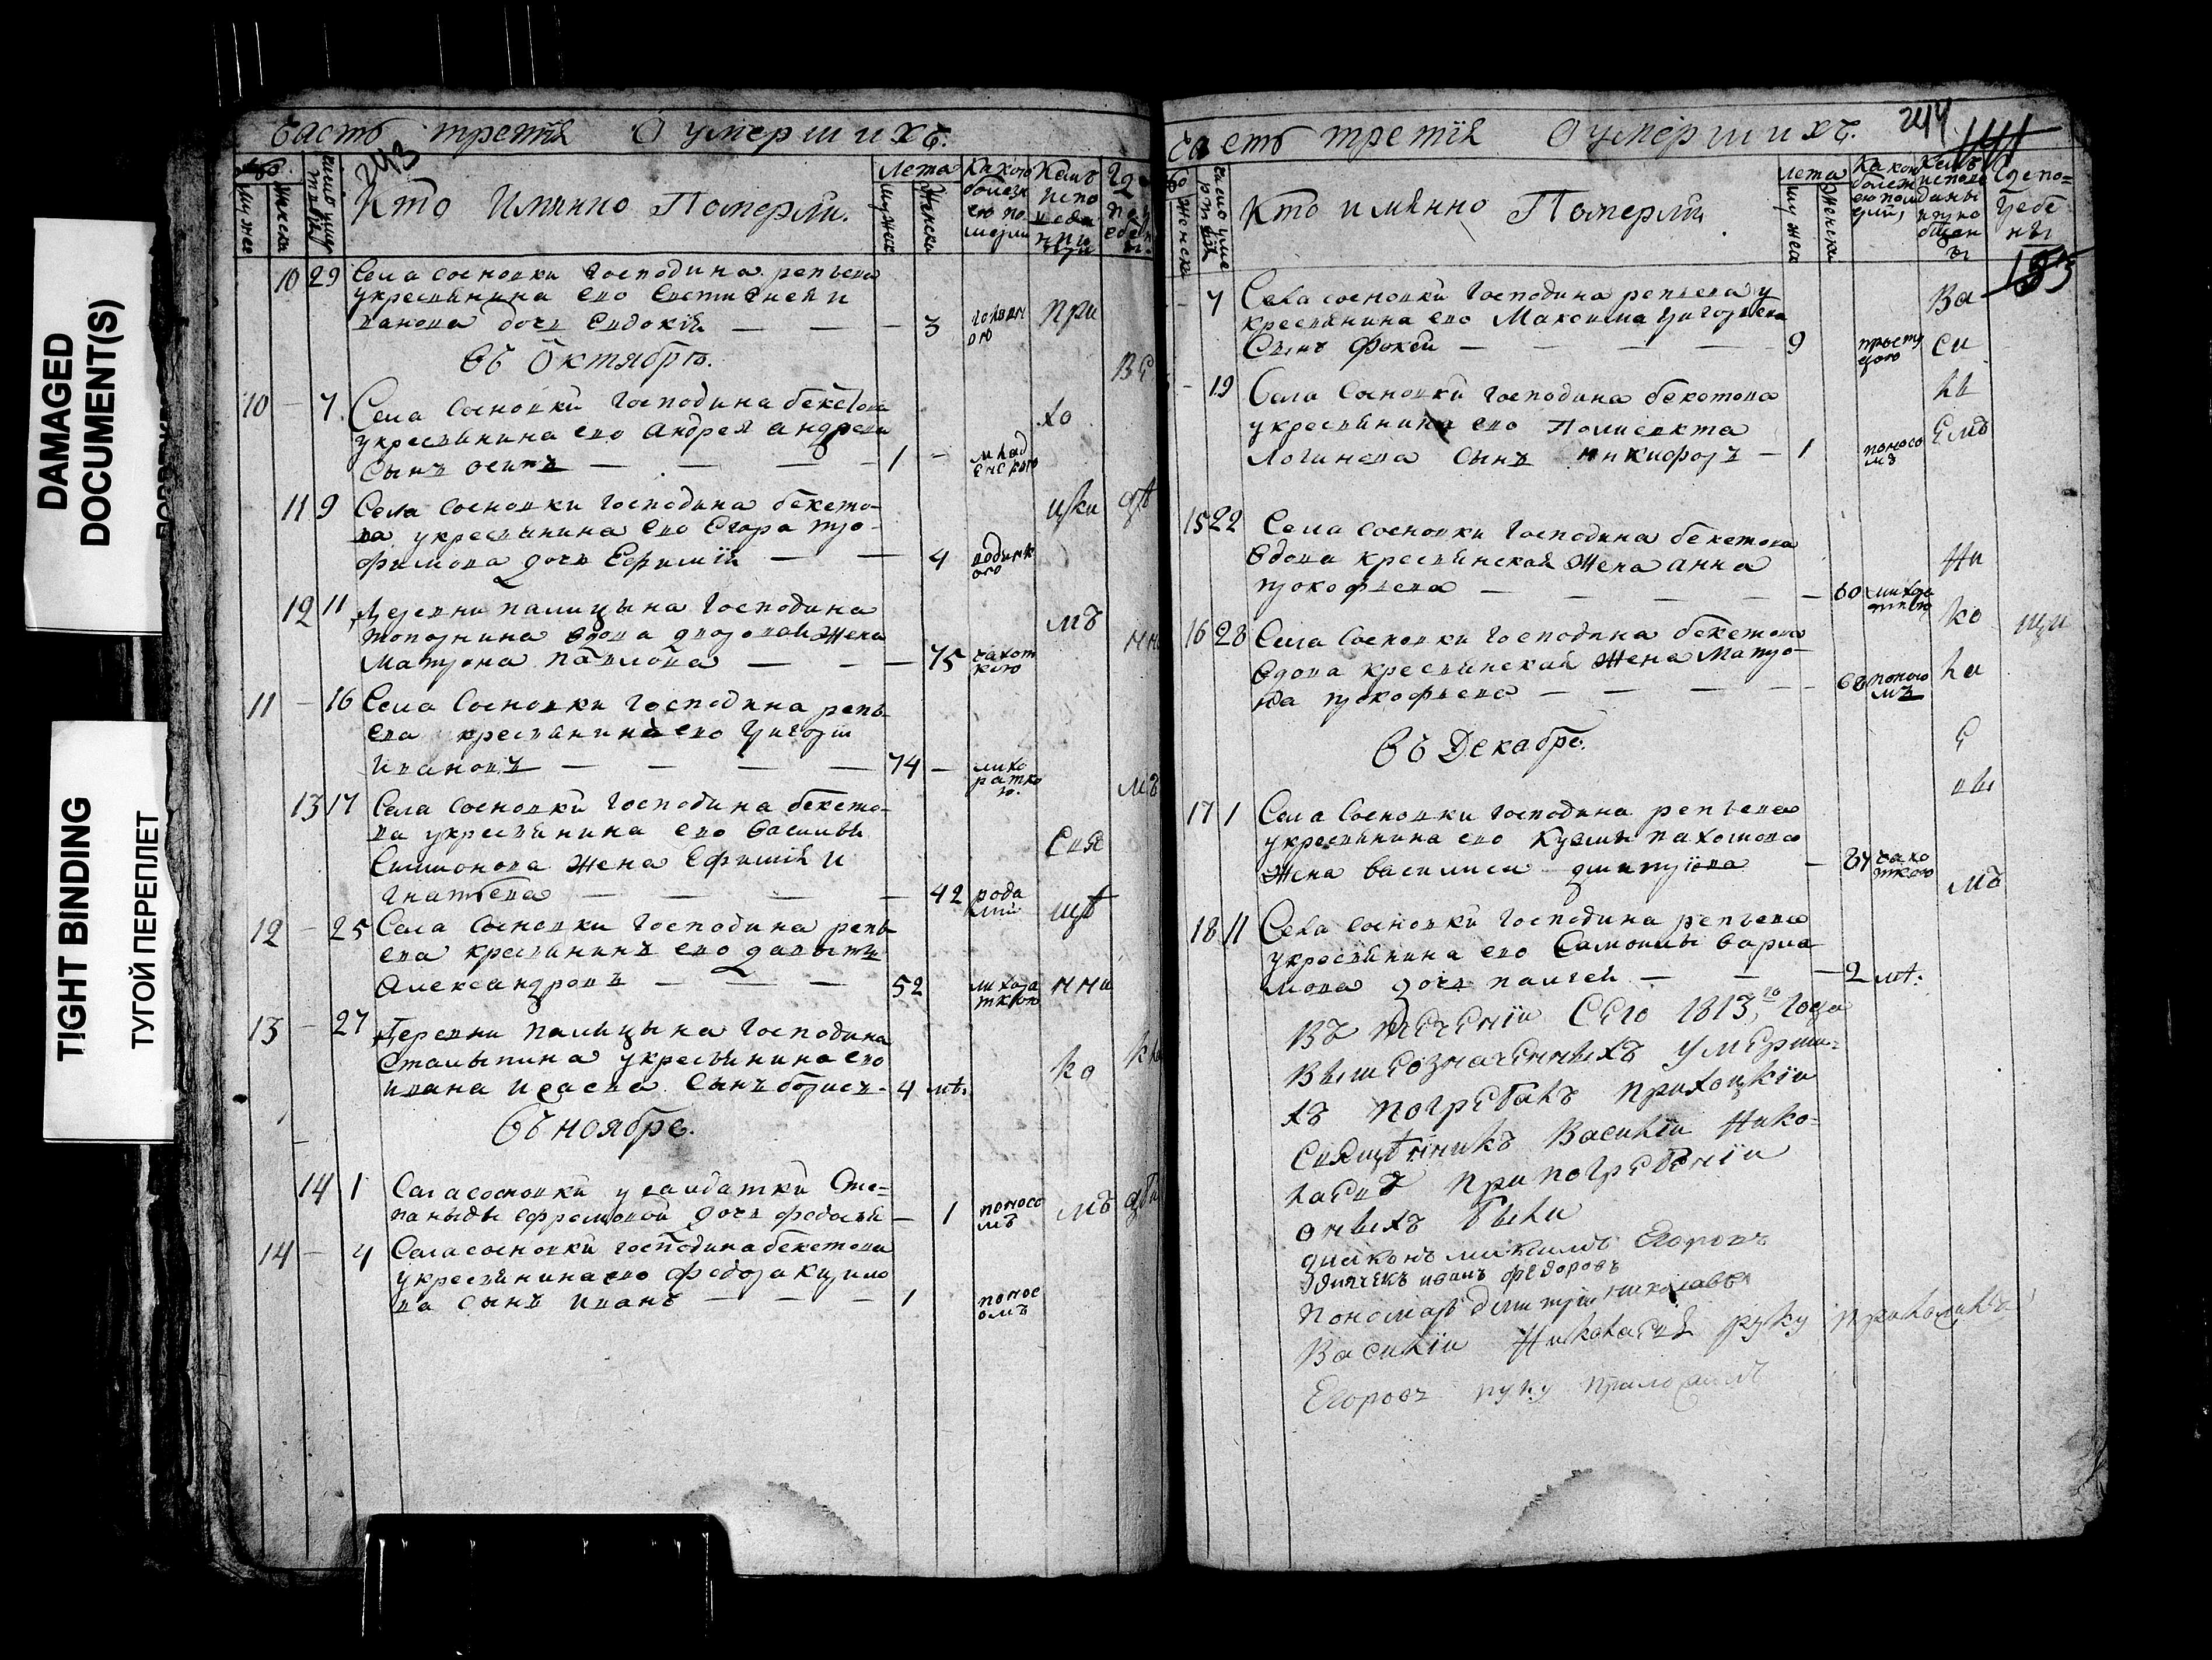 DAMAGED
DOCUMENT(S)
TIGHT BINDING
ТУГОЙ ПЕРЕПЛЕТ
Часть третія О умершихъ.
243
Кто Имянно Померли.
Лета
мужеск
женски
10 29 Села сосновки господина репьева
укрестьянина ево Евстигнея и
ванова дочь Евдокія — — — 3
при
въ Октябрѣ.
10 – 7. Села Сосновки господина бекетова
укрестьянина ево Андрея андреева
Сынъ осипъ — — — 1 – млад
енского
хо
11 9 Села сосновки господина бекето-
ва укрестьянина ево Егора тро-
фимова дочь Ефимія — — 4 родимч
ого
цки
12 11 Деревни палицына господина
топорнина вдова дворовая жена
Матрона павлова — — — 75 чахот
кою
мъ
11 – 16 Села Сосновки господина репь-
ева крестьянина ево Григори
Ивановъ — — — — 74 – лихо
ратко
ю.
13 17 Села Сосновки господина бекето-
ва укрестьянина ево василья
Симионова жена Ефимія и
гнатьева — — — — 42 рода
ми
Свя
щѣ
12 – 25 Села Сосновки господина репь
ева крестьянинъ ево давыдъ
Александровъ — — — 52 лихора
ткою
нни
13 – 27 Деревни палицына господина
Сталыпина укрестьянина ево
ивана исаева Сынъ борисъ - 4 лѣ.
ко
въ ноябре.
14 1 Села сосновки у салдатки Сте-
паниды ефремовой дочь федосья — 1 поносо
мъ
мъ
14 – 4 Села сосновки господина бекетова
укрестьянина ево федора кирило
ва сынъ иванъ — — — 1 понос
омъ
Часть третія О умершихъ.
244
Кто имянно Померли
Лета
мужеск
Женски
Где по-
гребе
ны
– 7 Села сосновки господина репьева у
крестьянина ево Максима григорьева
Сынъ Фокей — — — — 9 просту
дою
Ва
си
– 19 Села Сосновки господина бекетова
укрестьянина ево Полиекта
Логинова сынъ никифоръ — 1 поносо
мъ
лі
Емъ
15 22 Села сосновки господина бекетова
вдова крестьянская жена анна
прокофьева — — — — 60 лихора
ткою
Ни
16 28 Села Сосновки господина бекетова
вдова крестьянская жена Матро-
на прокофьева — — — — 68 поносо
мъ
ко
ла
щи
въ Декабре.
Е
вы
17 1 Села Сосновки господина репьева
укрестьянина ево Кузмы пахомова
жена василиса дмитрiева — 84 чахо
ткою
мъ
18 11 Села Сосновки господина репьева
укрестьянина ево Самоилы варла
мова дочь палгея — — — 2 лѣ.
Въ теченіи Сего 1813,го года
Вышеозначенныхъ умерши-
хъ погребалъ приходцкіи
Священникъ Василіи Нико-
лаевъ При погребеніи
оныхъ были
диаконъ максимъ Егоровъ
дьячекъ иванъ федоровъ
пономарь дмитри николаевъ
Василіи Николаевъ руку приложилъ
Егоровъ руку приложилъ